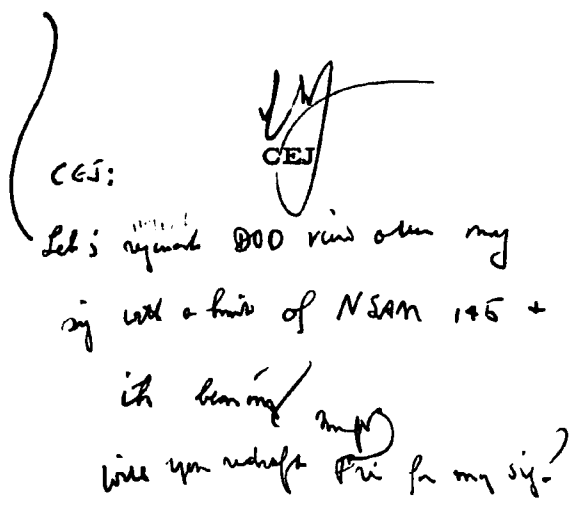 CEJ
CEJ:
Let's request DOD view over my
sig with a hint of NSAM 145 +
its bearing
Will you redraft Fri for my sig?